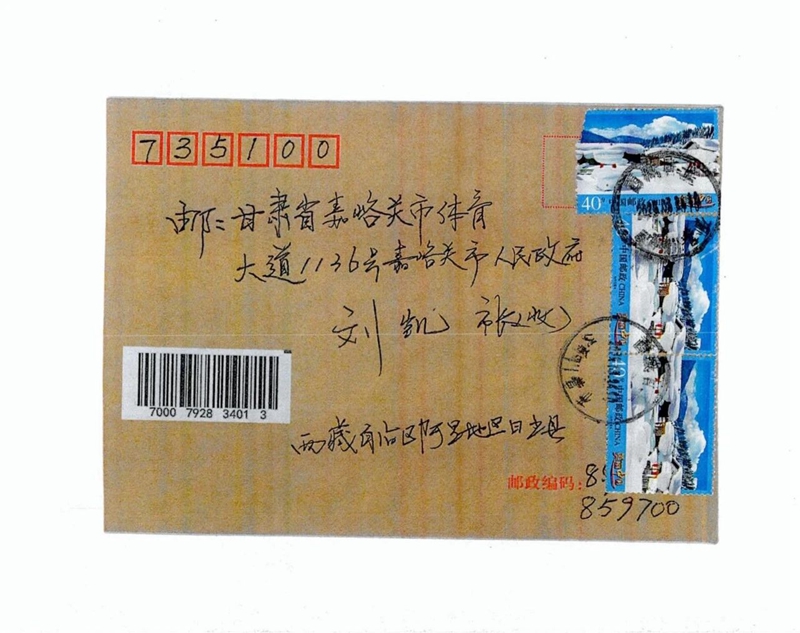 735100
邮：甘肃省嘉峪关市体育
大道1136号嘉峪关市人民政府
刘凯 市长(收)
7000 7928 3401 3
西藏自治区阿里地区日土县
邮政编码：85
859700
40分 中国邮政 CHINA
中国邮政 CHINA
40分 中国邮政 CHINA